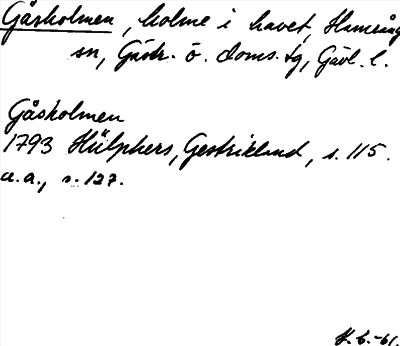 Gåsholmen, holme i havet, Hamrånge
sn, Gästr. ö. doms.tg, Gävl. l.
Gåsholmen
1793 Hülphers, Gestrikland, s. 115.
a.a., s. 127.